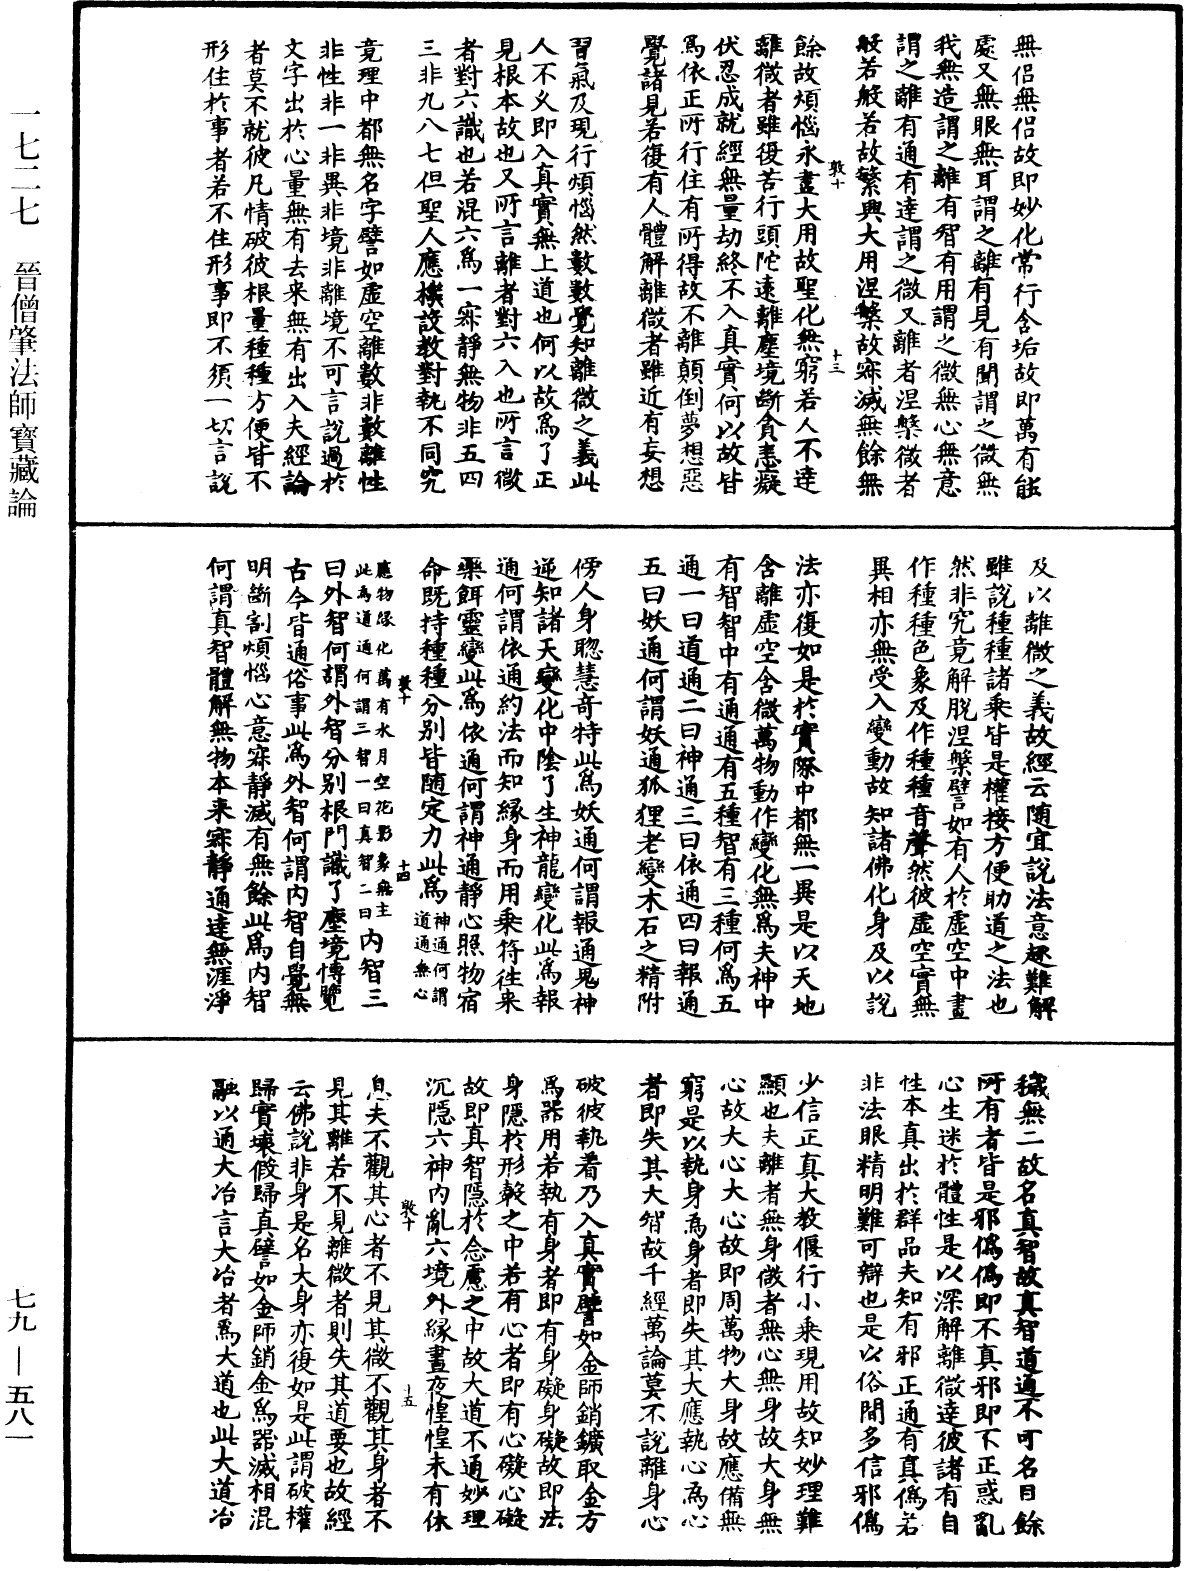 無侶無侣故即妙化常行含垢故即萬有能
處又無眼無耳謂之離有見有聞謂之微無
我無造謂之離有智有用謂之微無心無意
謂之離有通有達謂之微又離者涅槃微者
般若般若故繁興大用涅槃故寂滅無餘無
餘故煩惱永盡大用故聖化無窮若人不達
離微者雖復苦行頭陀遠離塵境斷貪恚癡
伏忍成就經無量劫終不入真實何以故皆
為依正所行住有所得故不離顛倒夢想惡
覺諸見若復有人體解離微者雖近有妄想
敦十
十三
習氣及現行煩惱然數數覺知離微之義此
人不乆即入真實無上道也何以故為了正
見根本故也又所言離者對六入也所言微
者對六識也若混六為一寂靜無物非五四
三非九八七但聖人應機設教對執不同究
竟理中都無名字譬如虛空離數非數離性
非性非一非異非境非離境不可言說過於
文字出於心量無有去来無有出入夫經論
者莫不就彼凡情破彼根量種種方便皆不
形住於事者若不住形事即不須一切言說
及以離微之義故經云随宜說法意趣難解
雖說種種諸乗皆是權接方便助道之法也
然非究竟解脫涅槃譬如有人於虛空中畫
作種種色象及作種種音聲然彼虛空實無
異相亦無受入變動故知諸佛化身及以說
法亦復如是於實際中都無一異是以天地
含離虛空含微萬物動作變化無為夫神中
有智智中有通通有五種智有三種何為五
通一曰道通二曰神通三曰依通四曰報通
五曰妖通何謂妖通狐狸老變木石之精附
傍人身聰慧奇特此為妖通何謂報通鬼神
逆知諸天變化中陰了生神龍變化此為報
通何謂依通約法而知縁身而用乗符往来
藥餌靈變此為依通何謂神通靜心照物宿
命既持種種分别皆随定力此為神通何謂
道通無心
應物縁化萬有水月空花影象無主
此為道通何謂三智一曰真智二曰内智三
敦十
十四
曰外智何謂外智分别根門識了塵境博覽
古今皆通俗事此為外智何謂内智自覺無
明斷割煩惱心意寂靜滅有無餘此為内智
何謂真智體解無物本来寂靜通達無涯淨
穢無二故名真智故真智道通不可名目餘
所有者皆是邪偽偽即不真邪即不正惑亂
心生迷於體性是以深解離微達彼諸有自
性本真出於群品夫知有邪正通有真偽若
非法眼精明難可辯也是以俗間多信邪偽
少信正真大教偃行小乗現用故知妙理難
顯也夫離者無身微者無心無身故大身無
心故大心大心故即周萬物大身故應備無
窮是以執身為身者即失其大應執心為心
者即失其大智故千經萬論莫不說離身心
破彼執着乃入真實譬如金師銷鑛取金方
為器用若執有身者即有身礙身礙故即法
身隱於形殼之中若有心者即有心礙心礙
故即真智隱於念慮之中故大道不通妙理
沉隱六神内亂六境外縁晝夜惶惶未有休
息夫不觀其心者不見其微不觀其身者不
敦十
十五
見其離若不見離微者則失其道要也故經
云佛說非身是名大身亦復如是此謂破權
歸實壞假歸真譬如金師銷金為器滅相混
融以通大冶言大冶者為大道也此大道冶
一七二七　晉僧肇法師寶藏論
七九—五八一